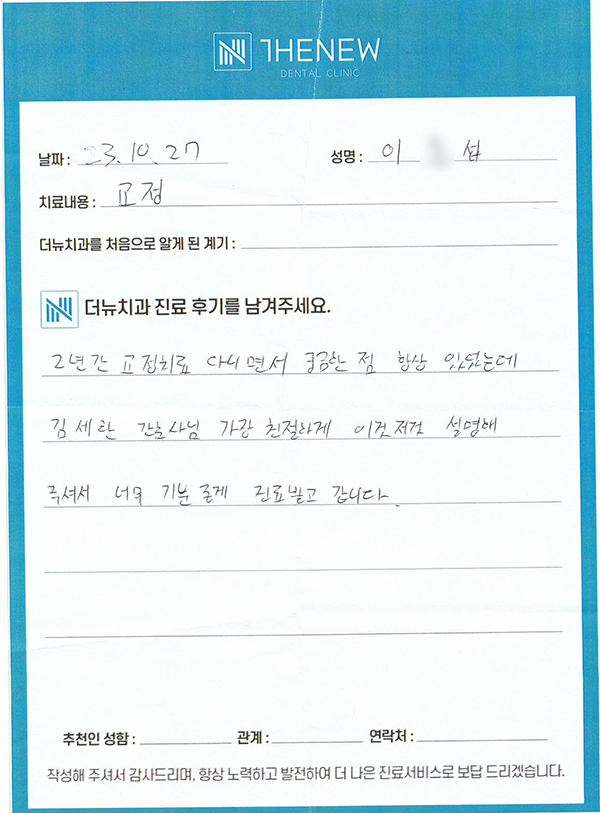 THENEW
DENTAL CLINIC
날짜 : 23.10.27 성명 : 이 섭
치료내용 : 교정
더뉴치과를 처음으로 알게 된 계기 :
더뉴치과 진료 후기를 남겨주세요.
2년간 교정치료 다니면서 궁금한 점 항상 있었는데
김세란 간호사님 가장 친절하게 이것저것 설명해
주셔서 너무 기분 좋게 진료받고 갑니다.
추천인 성함 : 관계 : 연락처 :
작성해 주셔서 감사드리며, 항상 노력하고 발전하여 더 나은 진료서비스로 보답 드리겠습니다.